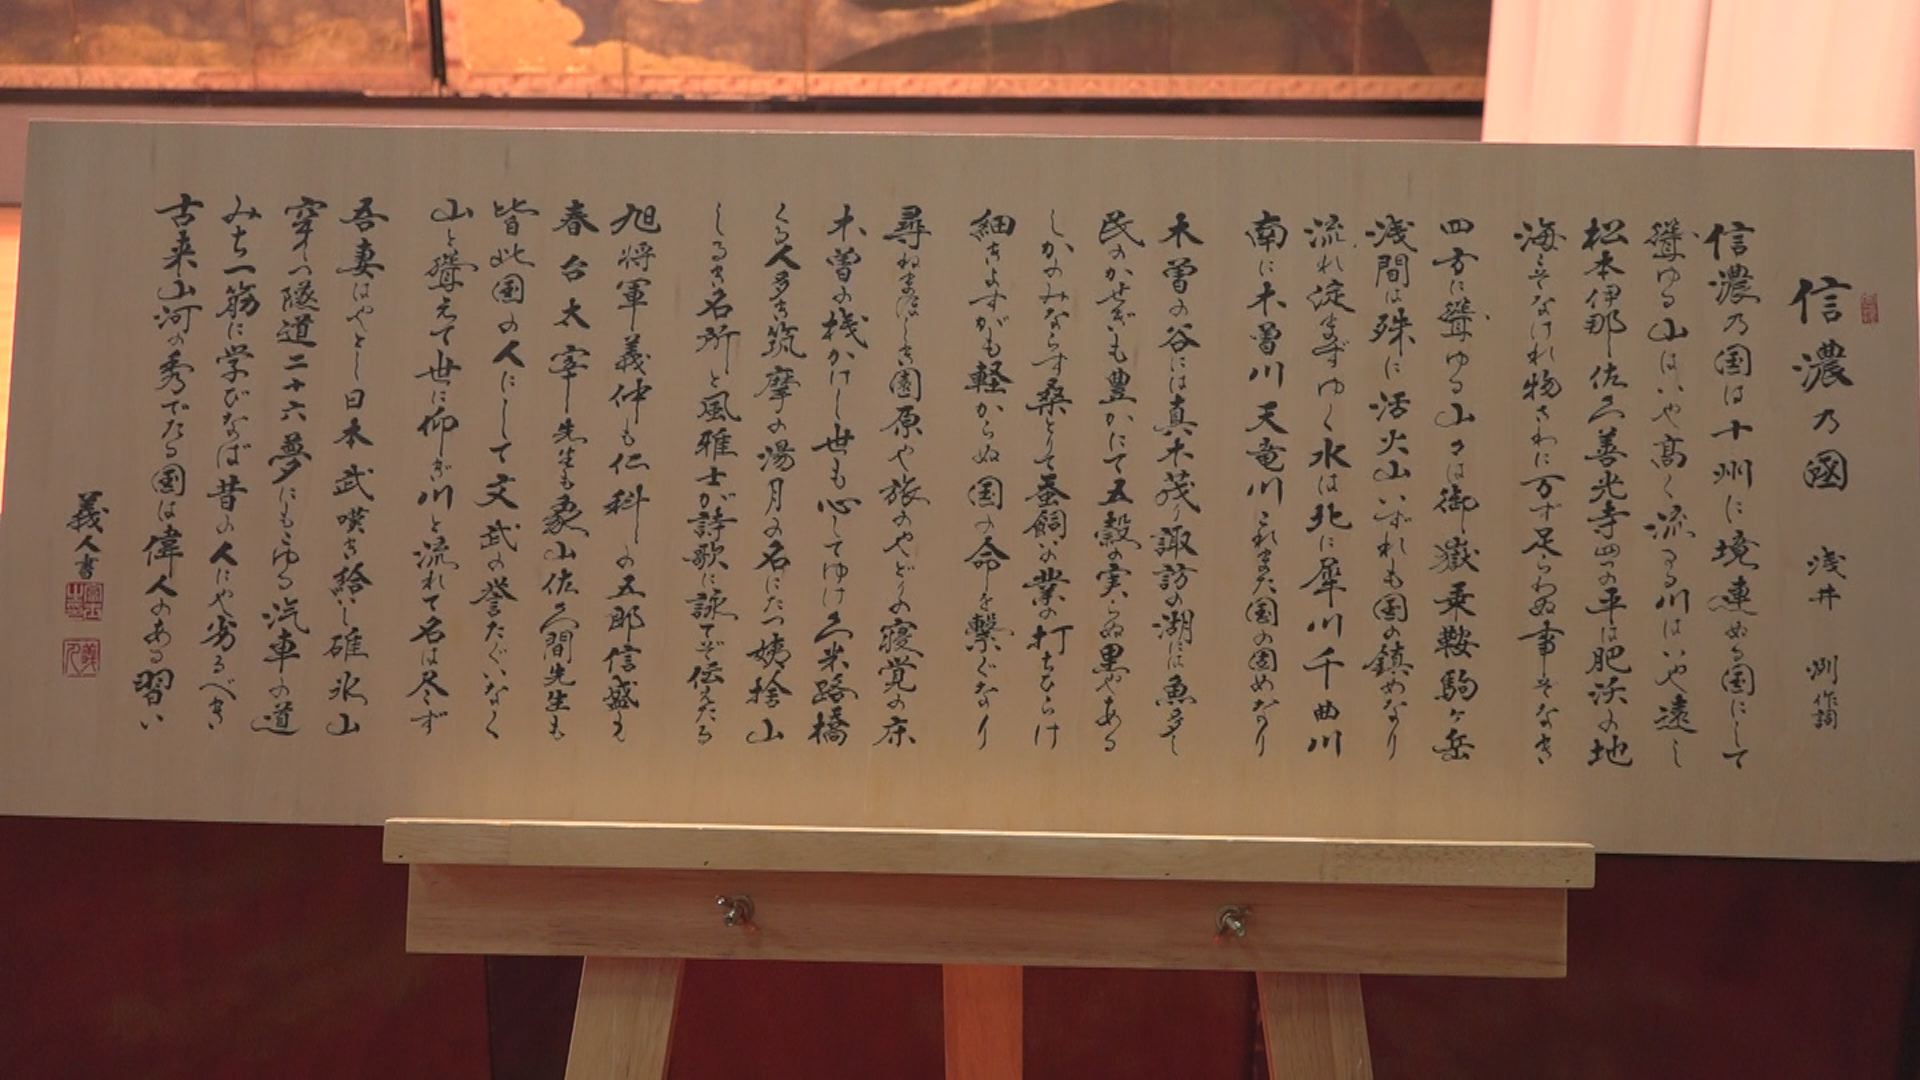 信濃乃國 浅井 洌 作詞
信濃乃国は十州に境連ぬる国にして
聳ゆる山はいや高く流るゝ川はいや遠し
松本伊那佐久善光寺四つの平は肥沃の地
海こそなけれ物さわに万ず足らわぬ事ぞなき
四方に聳ゆる山々は御嶽乗鞍駒ヶ岳
浅間は殊に活火山いずれも国の鎮めなり
流れ淀まずゆく水は北に犀川千曲川
南に木曽川天竜川これまた国の固めなり
木曽の谷には真木茂り諏訪の湖には魚多し
民のかせぎも豊かにて五穀の実らぬ里やある
しかのみならず桑とりて蚕飼いの業の打ちひらけ
細きよすがも軽からぬ国の命を繋ぐなり
尋ねまほしき園原や旅のやどりの寝覚の床
木曽の桟かけし世も心してゆけ久米路橋
くる人多き筑摩の湯月の名にたつ姨捨山
しるき名所と風雅士が詩歌に詠てぞ伝えたる
旭将軍義仲も仁科の五郎信盛も
春台太宰先生も象山佐久間先生も
皆此国の人にして文武の誉たぐいなく
山と聳えて世に仰ぎ川と流れて名は尽ず
吾妻はやとし日本武嘆き給いし碓氷山
穿つ隧道二十六夢にもこゆる汽車の道
みち一筋に学びなば昔の人にや劣るべき
古来山河の秀でたる国は偉人のある習い
義人書